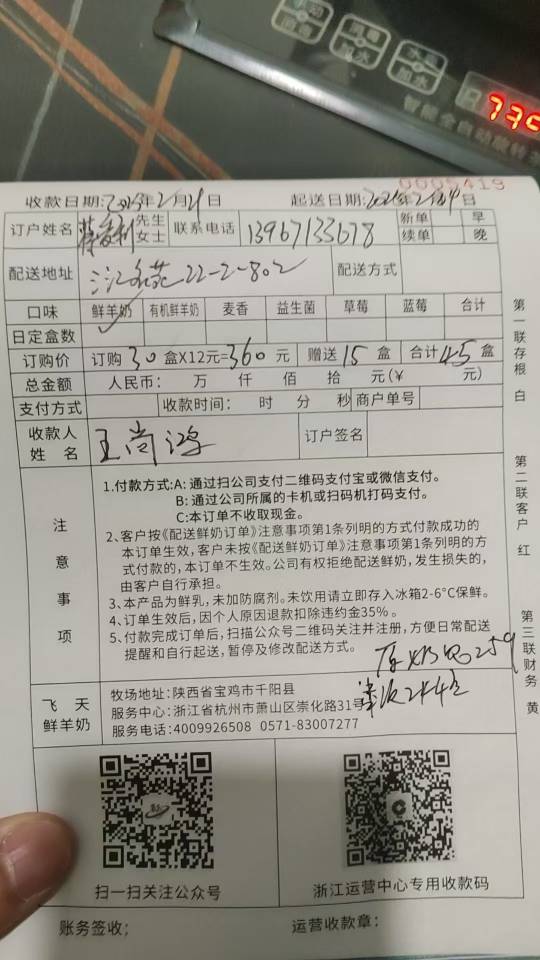 加水
加水
770
0005419
收款日期:2023年2月21日 起送日期:年2月日
订户姓名 先生 女士 联系电话 13967133678 新单 早 续单 晚
配送地址 22-2-802 配送方式
口味 鲜羊奶 有机鲜羊奶 麦香 益生菌 草莓 蓝莓 合计
日定盒数
订购价 订购30盒X12元=360元 赠送15盒 合计45盒
总金额 人民币: 万 仟 佰 拾 元(¥ 元)
支付方式 收款时间: 时 分 秒 商户单号
收款人姓名 王尚鸿 订户签名
注意事项
1.付款方式:A: 通过扫公司支付二维码支付宝或微信支付。
B: 通过公司所属的卡机或扫码机打码支付。
C:本订单不收取现金。
2、客户按《配送鲜奶订单》注意事项第1条列明的方式付款成功的
本订单生效,客户未按《配送鲜奶订单》注意事项第1条列明的方
式付款的,本订单不生效。公司有权拒绝配送鲜奶,发生损失的,
由客户自行承担。
3、本产品为鲜乳,未加防腐剂。未饮用请立即存入冰箱2-6°C保鲜。
4、订单生效后,因个人原因退款扣除违约金35%。
5、付款完成订单后,扫描公众号二维码关注并注册,方便日常配送
提醒和自行起送,暂停及修改配送方式。
259
飞天
鲜羊奶
牧场地址:陕西省宝鸡市千阳县
服务中心:浙江省杭州市萧山区崇化路31号
服务电话:4009926508 0571-83007277
扫一扫关注公众号
浙江运营中心专用收款码
账务签收: 运营收款章:
第一联存根 白
第二联客户 红
第三联财务 黄